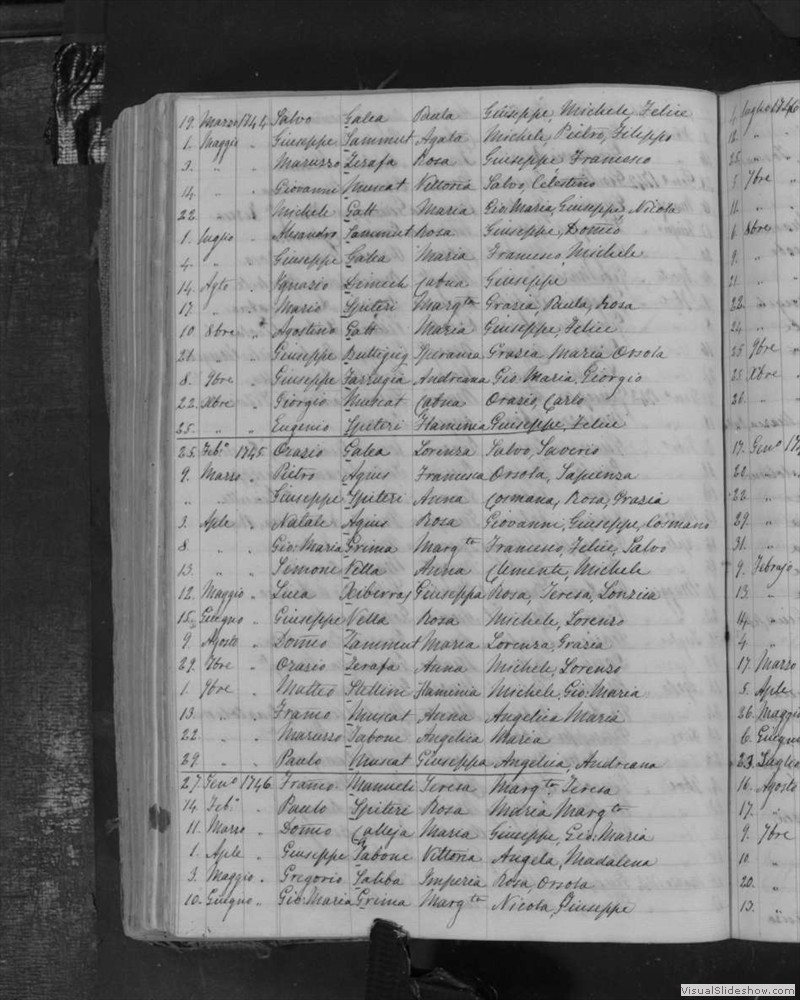 19. Marzo 1744 Salvo Galea Paula Giuseppe, Michele, Felice
1. Maggio " Giuseppe Sammut Agata Michele, Pietro, Filippo
3. " " Maruzzo Zerafa Rosa Giuseppe, Francesco
14. " " Giovanni Muscat Vittoria Salvo, Celestino
22. " " Michele Gatt Maria Gio: Maria, Giuseppe, Nicola
1. Luglio " Alesandro Sammut Rosa Giuseppe, Domco
4. " " Giuseppe Galea Maria Francesco, Michele
14. Agto " Ignazio Dimech Catna Giuseppe
17. " " Mario Spiteri Margta Grazia, Paula, Rosa
10. 8bre " Agostino Gatt Maria Giuseppe, Felice
21. " " Giuseppe Buttigieg Speranza Grazia Maria Orsola
8. 9bre " Giuseppe Farrugia Andreana Gio: Maria, Giorgio
22. Xbre " Giorgio Muscat Catna Orazio, Carlo
25. " " Eugenio Spiteri Flaminia Giuseppe, Felice
25. Feb.o 1745. Orazio Galea Lorenza Salvo, Saverio
9. Marzo " Pietro Agius Francesca Orsola, Sapienza
" " " Giuseppe Spiteri Anna Cosmana, Rosa, Grazia
3. Aple " Natale Agius Rosa Giovanni, Giuseppe, Cosmano
8. " " Gio: Maria Grima Margta Francesco, Felice, Salvo
13. " " Simone Vella Anna Clemente, Michele
12. Maggio " Luca Xiberras Giuseppa Rosa, Teresa,
15. Giugno " Giuseppe Vella Rosa Michele, Lorenzo
9. Agosto " Domco Zammut Maria Lorenza, Grazia
29. 7bre " Orazio Zerafa Anna Michele, Lorenzo
1. 9bre " Matteo Stellini Flaminia Michele, Gio: Maria
13. " " Franco Muscat Anna Angelica Maria
22. " " Maruzzo Tabone Angelica Maria
29. " " Paulo Muscat Giuseppa Angelica, Andreana
27. Gen.o 1746. Franco Manueli Teresa Margta, Teresa
14. Feb.o " Paulo Spiteri Rosa Maria Margta
11. Marzo " Domco Calleja Maria Giuseppe, Gio: Maria
1. Aple " Giuseppe Tabone Vittoria Angela, Madalena
3. Maggio " Gregorio Saliba Imperia Rosa, Orsola
10. Giugno " Gio: Maria Grima Margta Nicola, Giuseppe
4. Luglio 1746
12. " "
25. " "
5. 7bre "
11. " "
6. 8bre "
9. " "
21. "
22. "
24. "
25. 9bre
25. Xbre
26. "
17. Gen.o 17
22. "
22. "
29. "
31. "
9. Febrajo
13. "
14. "
4. "
17. Marzo
5. Aple
26. Maggio
6. Giugno
23. Luglio
16. Agosto
17. "
9. 7bre
10. "
20. "
13. "
VisualSlideshow.com